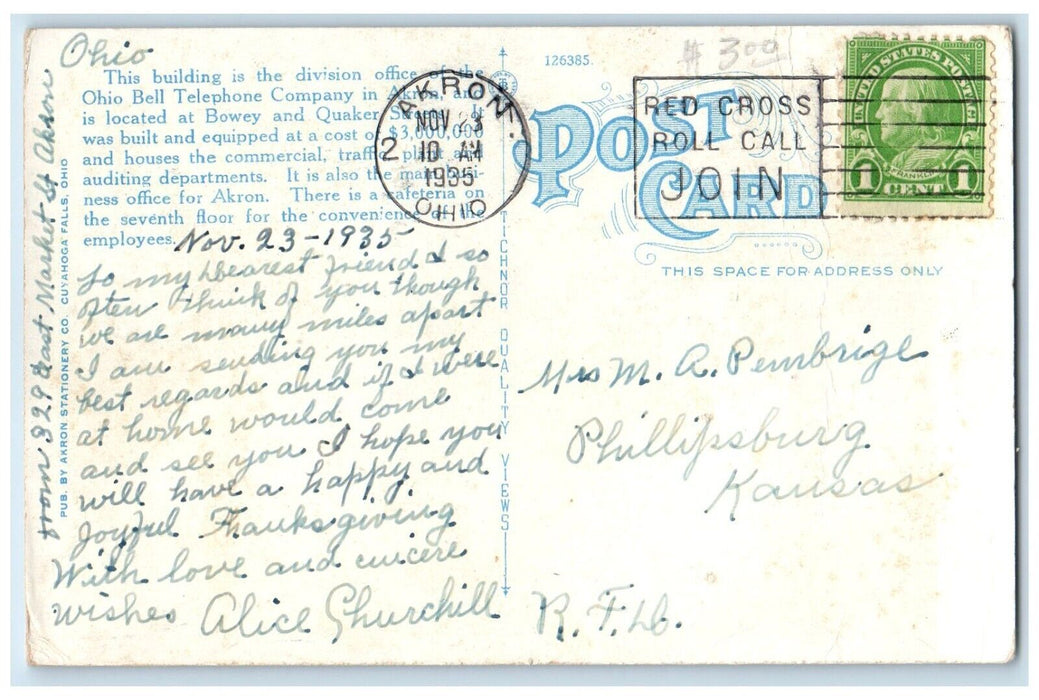 Ohio
This building is the division office of the
Ohio Bell Telephone Company in Akron, and
is located at Bowey and Quaker Sts. It
was built and equipped at a cost of $3,000,000
and houses the commercial, traffic, plant and
auditing departments. It is also the main busi-
ness office for Akron. There is a cafeteria on
the seventh floor for the convenience of the
employees.
Nov. 23-1935
To my Dearest friend I so
often think of you though
we are many miles apart
I am sending you my
best regards and if I were
at home would come
and see you I hope you
will have a happy and
Joyful Thanksgiving
With love and cincere
wishes Alice Churchill
from 329 East Market St Akron
PUB. BY AKRON STATIONERY CO. CUYAHOGA FALLS, OHIO
TICHNOR QUALITY VIEWS
126385.
$3.00
AKRON,
NOV 23
2 10 AM
1935
OHIO
RED CROSS
ROLL CALL
JOIN
UNITED STATES POSTAGE
FRANKLIN
1 CENT 1
POST
CARD
THIS SPACE FOR ADDRESS ONLY
Mrs M. A. Pembrige
Phillipsburg
Kansas
R. F. D.